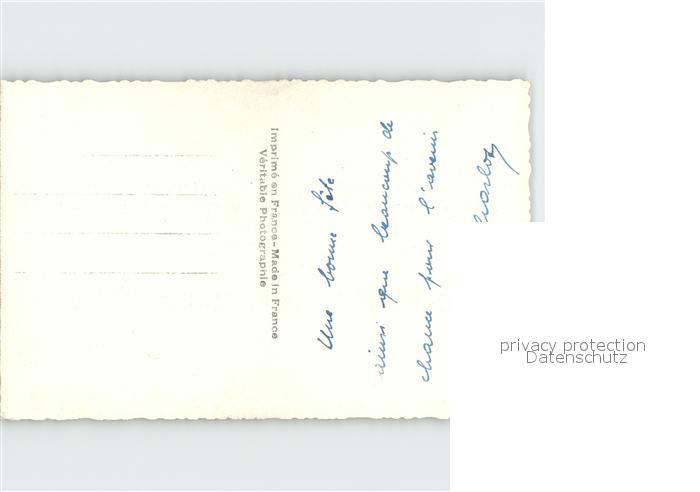 Une bonne fête
ainsi que beaucoup de
chance pour l'avenir
Imprimé en France - Made in France
Véritable Photographie
privacy protection
Datenschutz